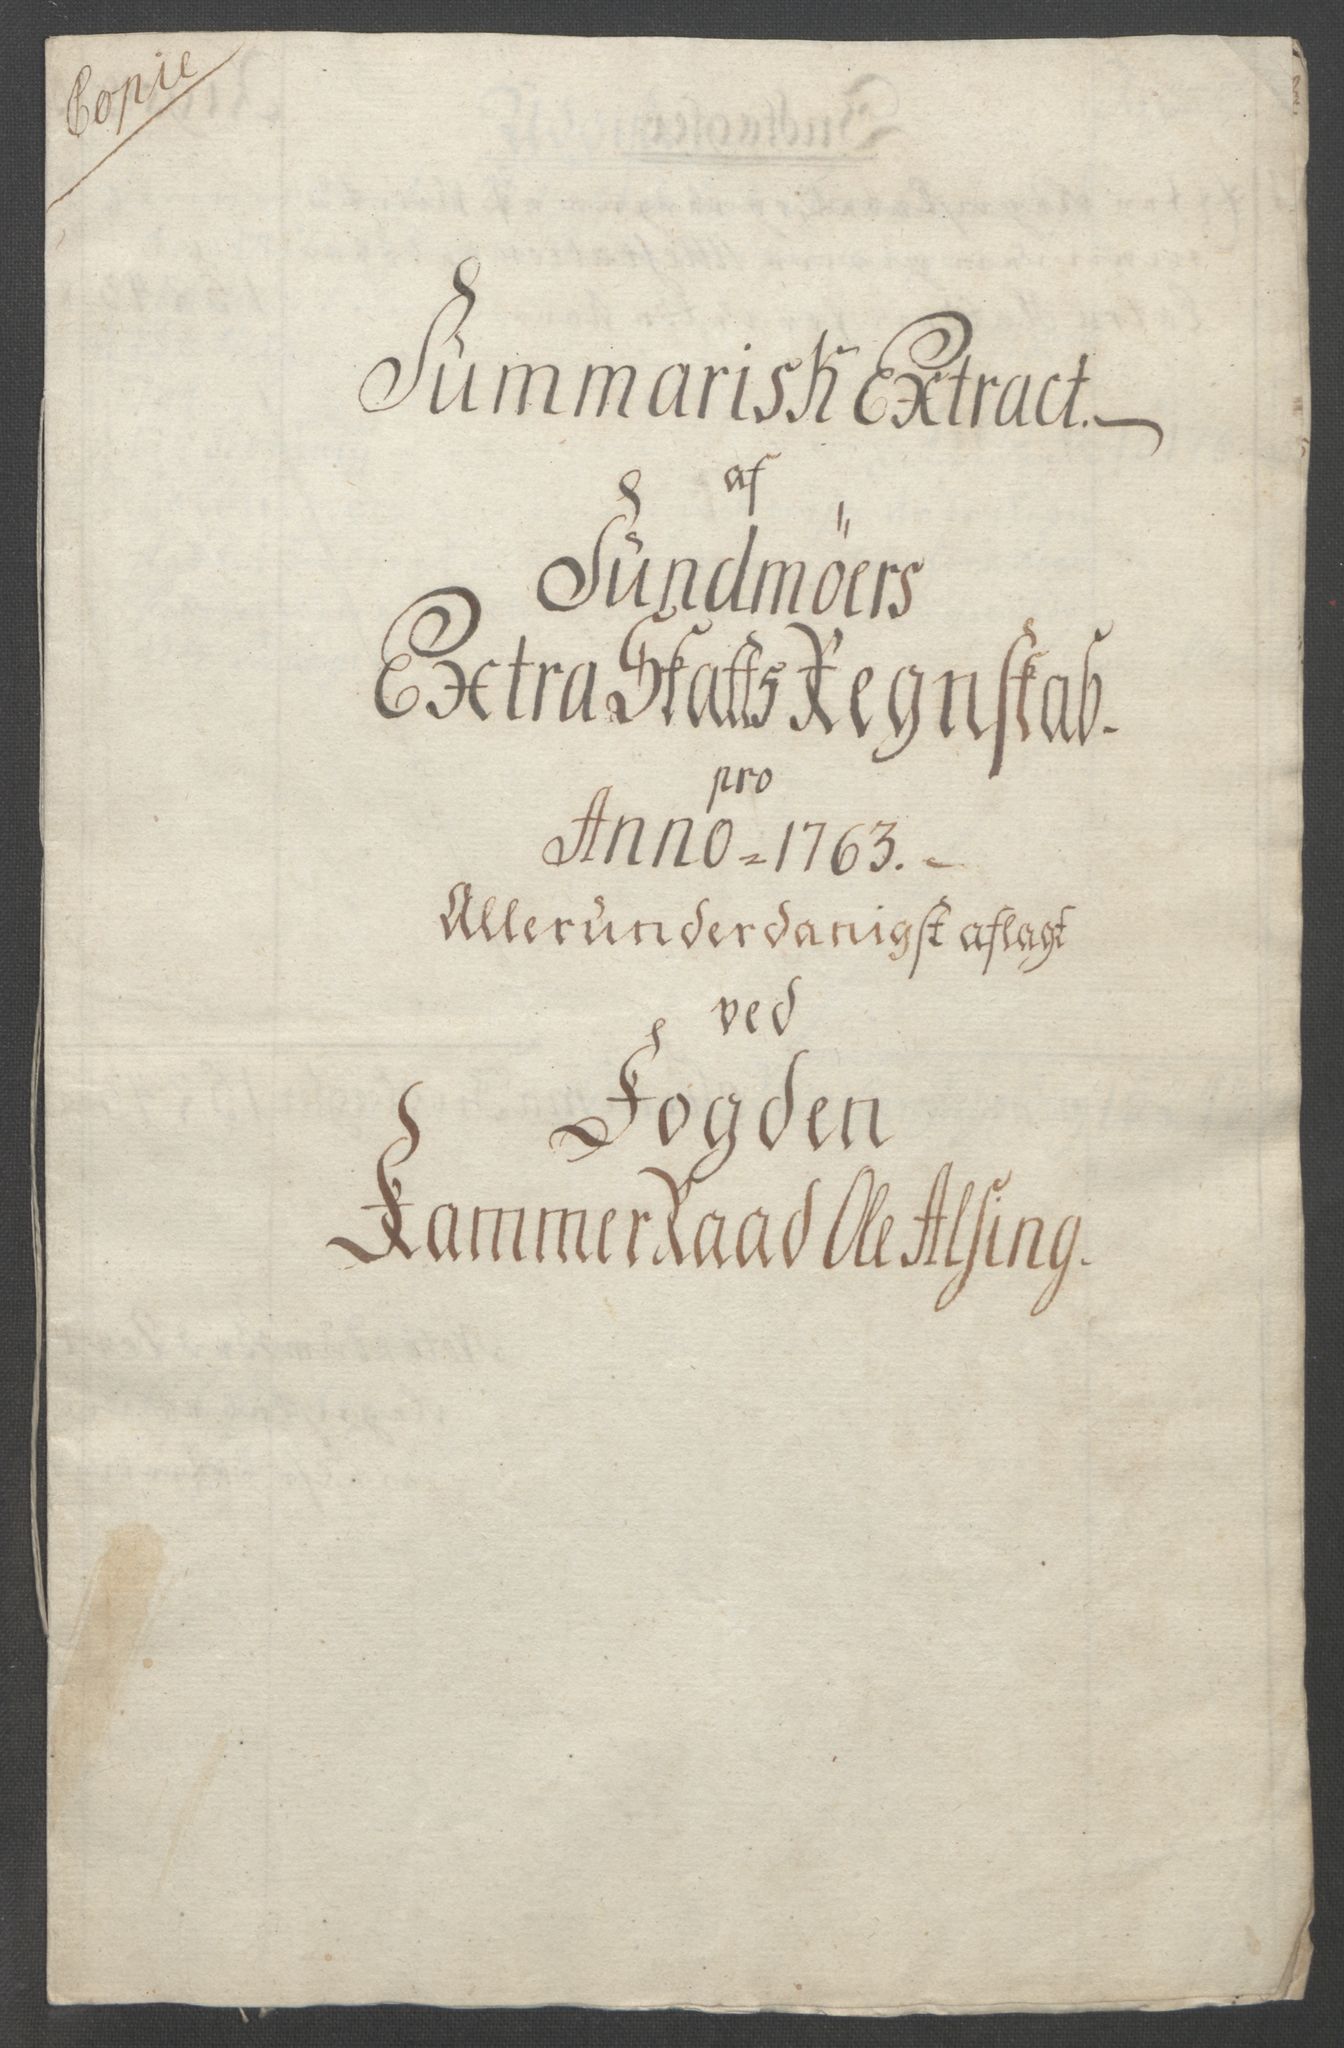 Copie
Summarisk Extract.
af
Sundmöers
Extra Skatts Regnskab.
pro
Anno = 1763.
Allerunderdanigst aflagt
ved
Fogden
KammerRaad Ole Alsing.